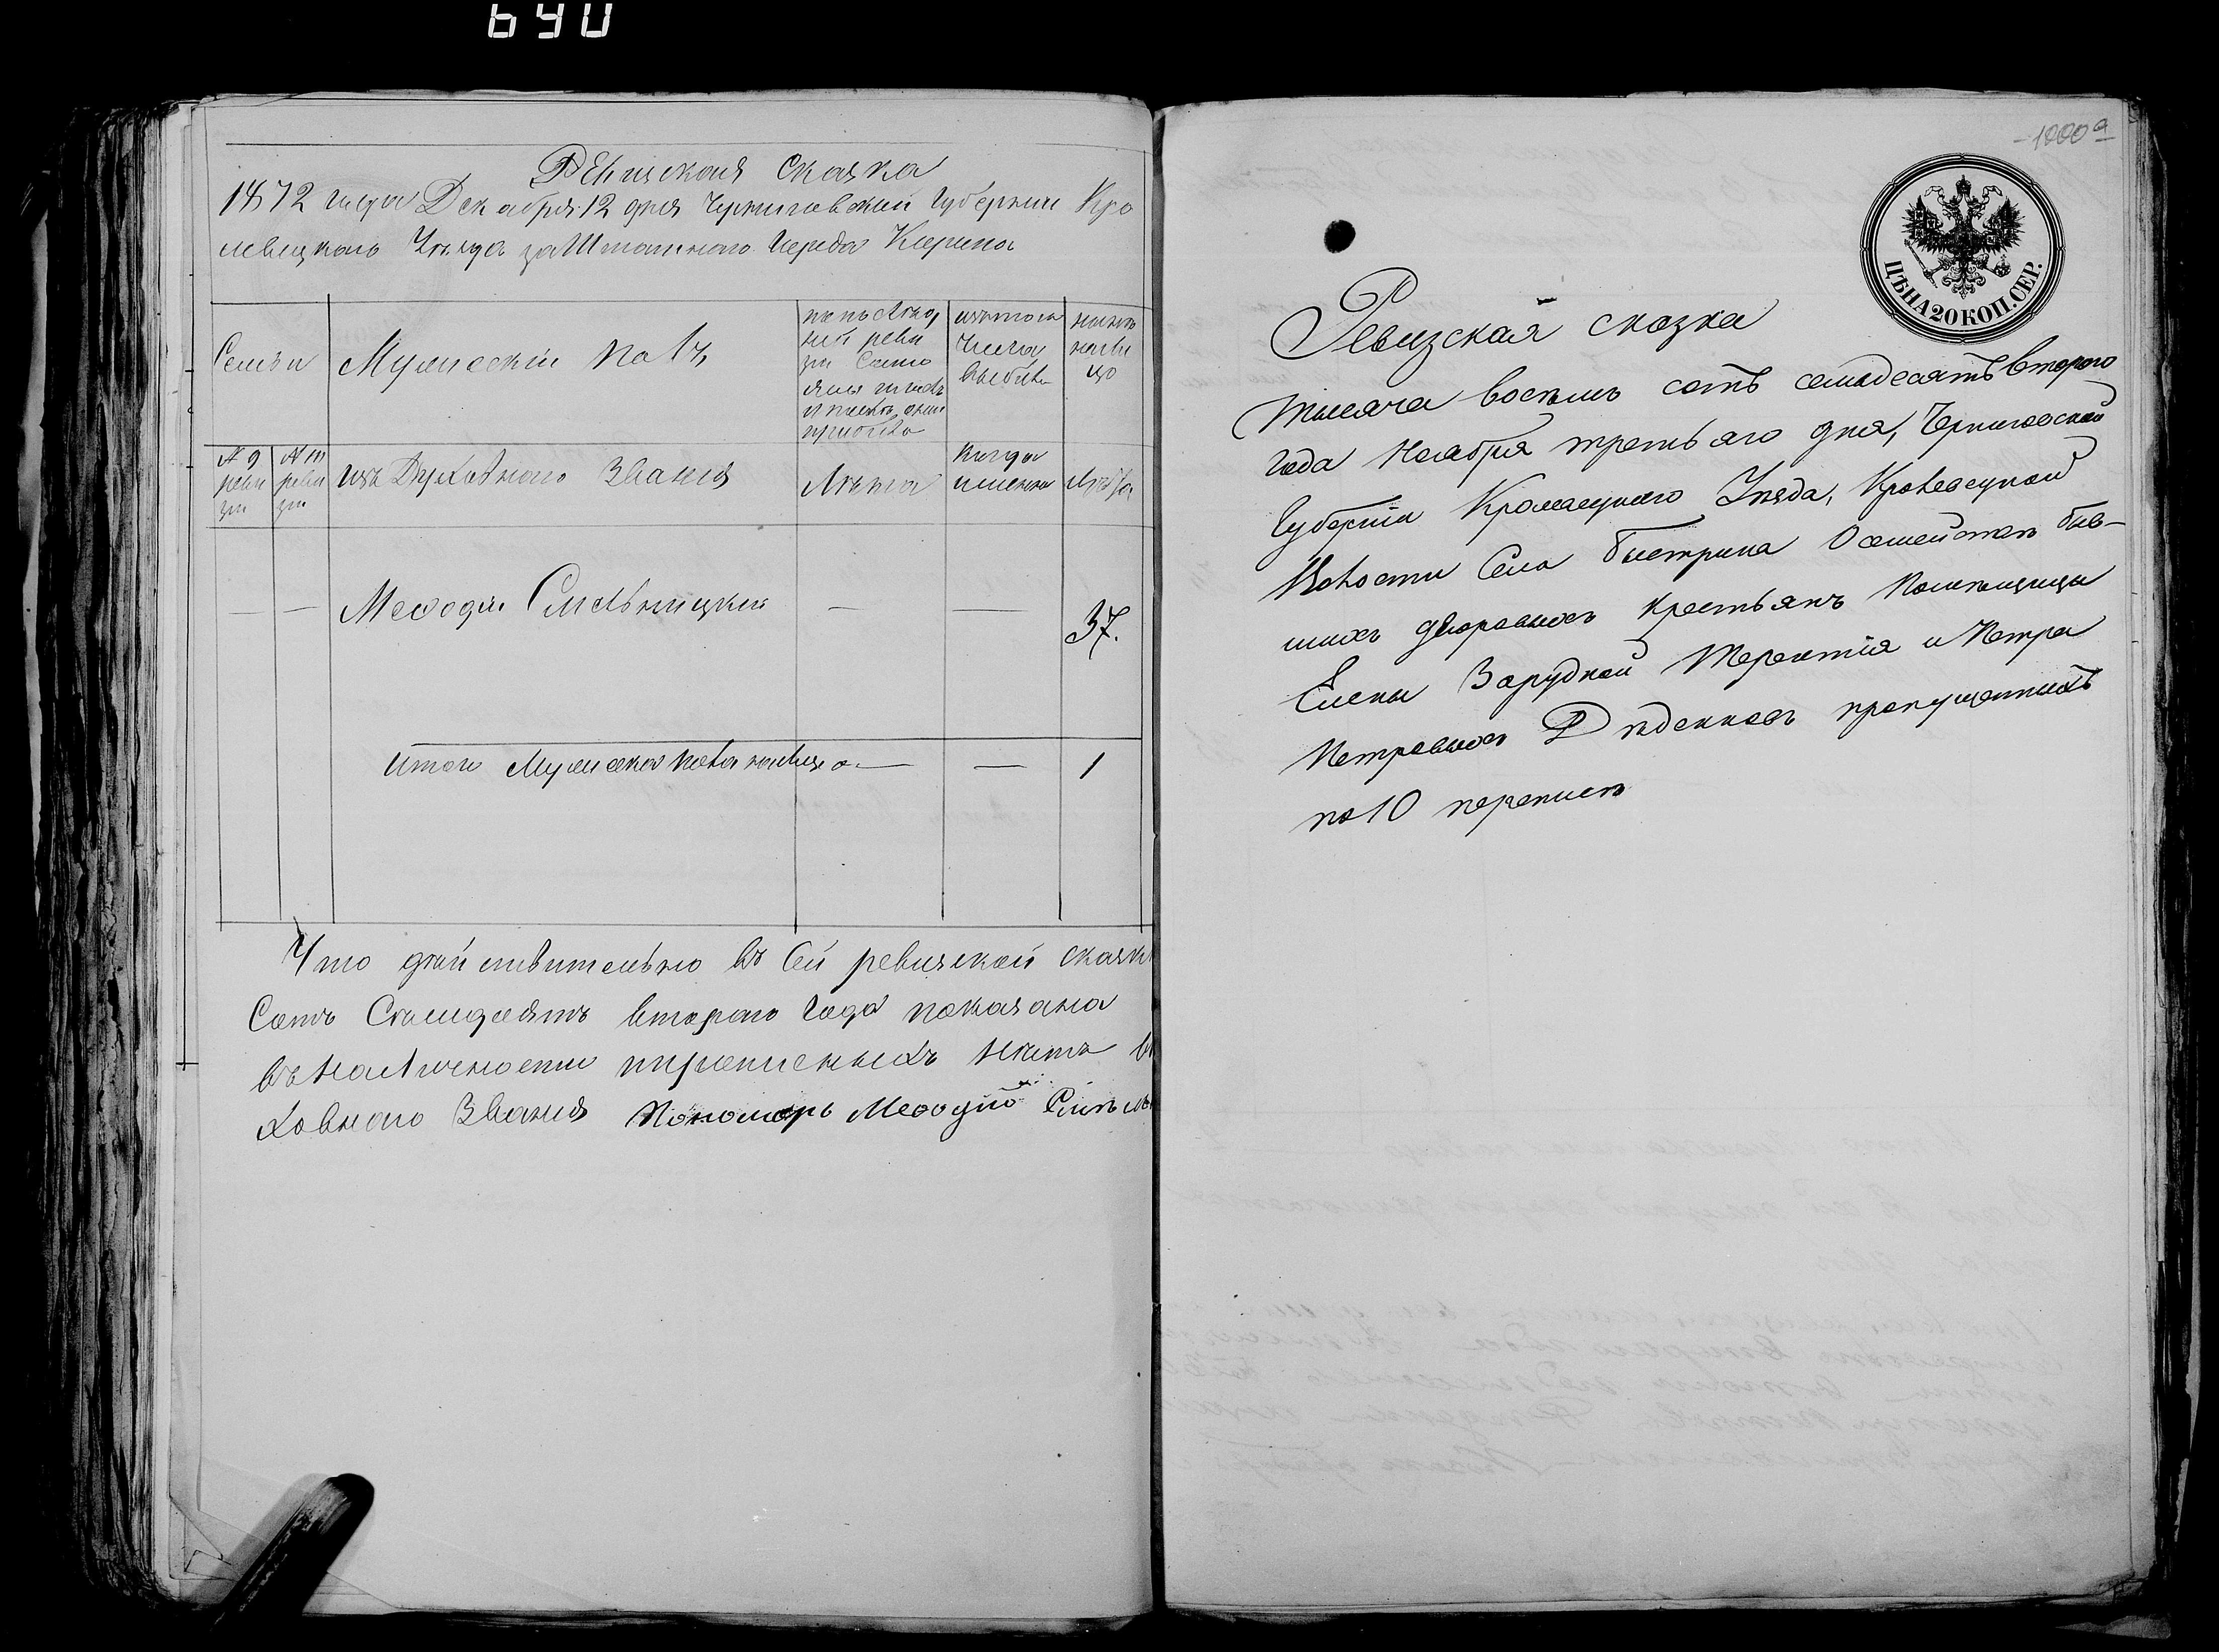 690
Ревизская Сказка
1872 года Декабря 12 дня Черниговской Губернии Кро
левецкаго Уезда заШтатнаго Города
Семьи
Мужескій полъ
по последней ревизіи состояло и после оной прибыло
изъ того числа выбыло
ныне на лицо
№ 9 ревизіи
№ 10 ревизіи
изъ Духовнаго Званія
Лета
Когда именно
Лета
— — Меѳодій — — 37.
Итого Мужеска пола налицо — — 1
Что действительно въ Сей ревизской сказк
Сотъ Семидесять втораго Года показана
въ наличности переписныхъ
ховнаго Званія Пономарь Меѳодій
1000 а
ЦѢНА 20 КОП. СЕР.
Ревизская сказка
тысяча восемь сотъ семьдесятъ втораго
года Ноября третьяго дня, Черниговской
Губерніи Кролевецкаго Уѣзда, Кролевецкой
Волости Села Быстрика О семействѣ быв-
шихъ дворовыхъ крестьянъ Помѣщицы
Елены Зарудной Терентія и Петра
Петровыхъ Дѣденковъ пропущенныхъ
по 10 переписи